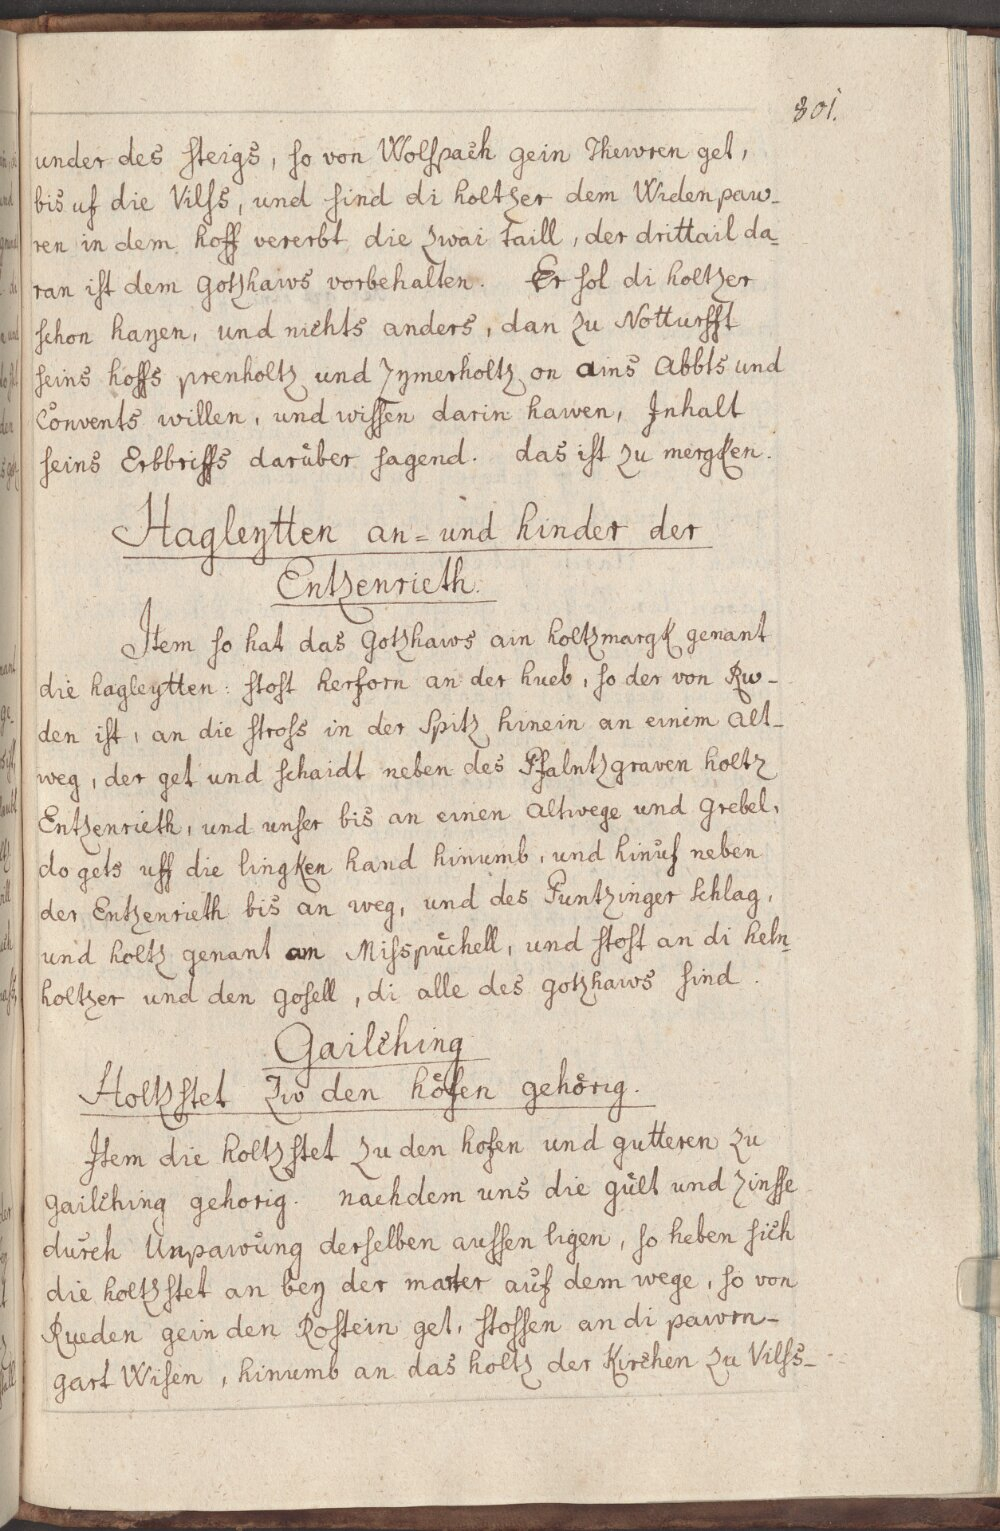 801.
under des steigs, so von Wolfpach gein Thewren get,
bis uf die Vilss, und sind di holtzer dem Widenpaw-
ren in dem hoff vererbt die zwai taill, der drittail da-
ran ist dem Gotzhaws vorbehalten. Er sol di holtzer
schon hayen, und nichts anders, dan zu Notturfft
seins hoffs prenholtz und Zymerholtz on ains Abbts und
Convents willen, und wissen darin hawen, Inhalt
seins Erbbriffs darüber sagend. das ist zu mergken.
Hagleytten an- und hinder der
Entzenrieth.
Item so hat das Gotzhaws ain holtzmargk genant
die hagleytten: stost herforn an der hueb, so der von Rw-
den ist, an die stross in der Spitz hinein an einem alt-
weg, der get und schaidt neben des Pfalntzgraven holtz
Entzenrieth, und unser bis an einen altwege und grebel,
do gets uff die lingken hand hinumb, und hinuf neben
der Entzenrieth bis an weg, und des Puntzinger schlag,
und holtz genant am Misspuchell, und stost an di heln-
holtzer und den gosell, di alle des gotzhaws sind.
Gailching
Holtzstet Zw den höfen gehörig.
Item die holtzstet zu den hofen und gutteren zu
Gailching gehorig. nachdem uns die gült und Zinsse
durch Unpawung derselben aussen ligen, so heben sich
die holtzstet an bey der marter auf dem wege, so von
Rueden gein den Rostein get, stossen an di pawrn-
gart Wisen, hinumb an das holtz der Kirchen zu Vilss-